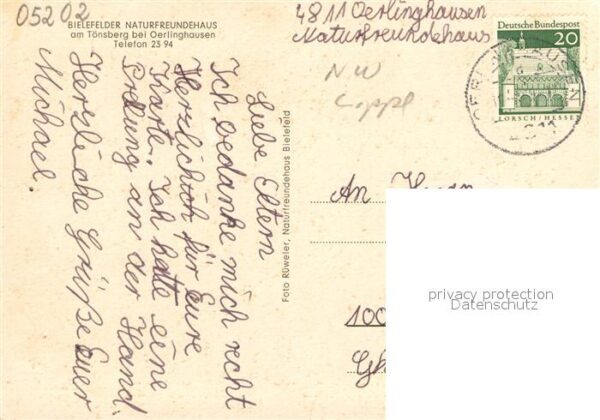 05202
BIELEFELDER NATURFREUNDEHAUS
am Tönsberg bei Oerlinghausen
Telefon 23 94
4811 Oerlinghausen
Naturfreundehaus
Deutsche Bundespost
20
LORSCH/HESSEN
4811
NW
Liebe Eltern
Ich bedanke mich recht
Herzlichtor für Eure
Karte. Ich hatte eine
an der Hand.
Herzliche Grüße Euer
Michael.
Foto Rüweler, Naturfreundehaus Bielefeld
An
100
privacy protection
Datenschutz